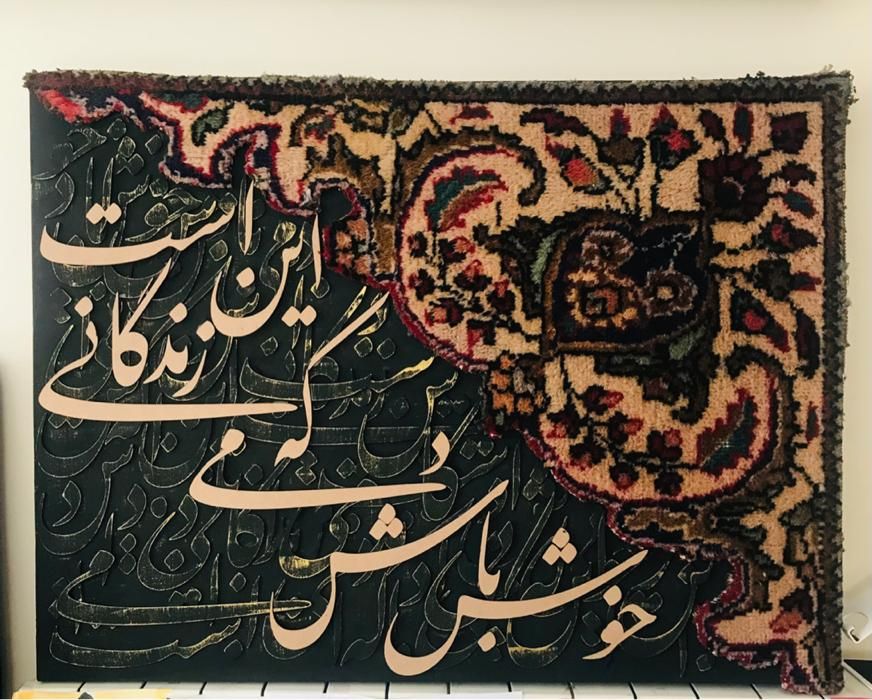 خوش باش
دمی که
زندگانی
این است